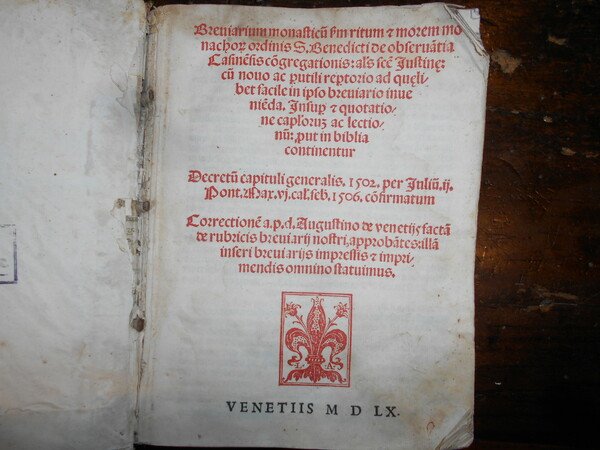 Breuiarium monasticū ẜm ritum ⁊ morem mo
nachoꝝ ordinis S. Benedicti de obseruātia
Casinēsis cōgregationis: als̄ scē Justinę:
cū nouo ac ꝑutili reptorio ad quęli-
bet facile in ipso breuiario inue
niēda. Insuꝑ ⁊ quotatio-
ne capl̓oruꝫ ac lectio-
nū: ꝓut in biblia
continentur
Decretū capituli generalis. 1502. per Juliū. ij.
Pont. Max. vj. cal. feb. 1506. cōfirmatum
Correctionē a. p. d. Augustino de venetijs factā
de rubricis breuiarij nostri, approbātes: illā
inseri breuiarijs impressis ⁊ impri-
mendis omnino statuimus.
L A
VENETIIS M D LX.